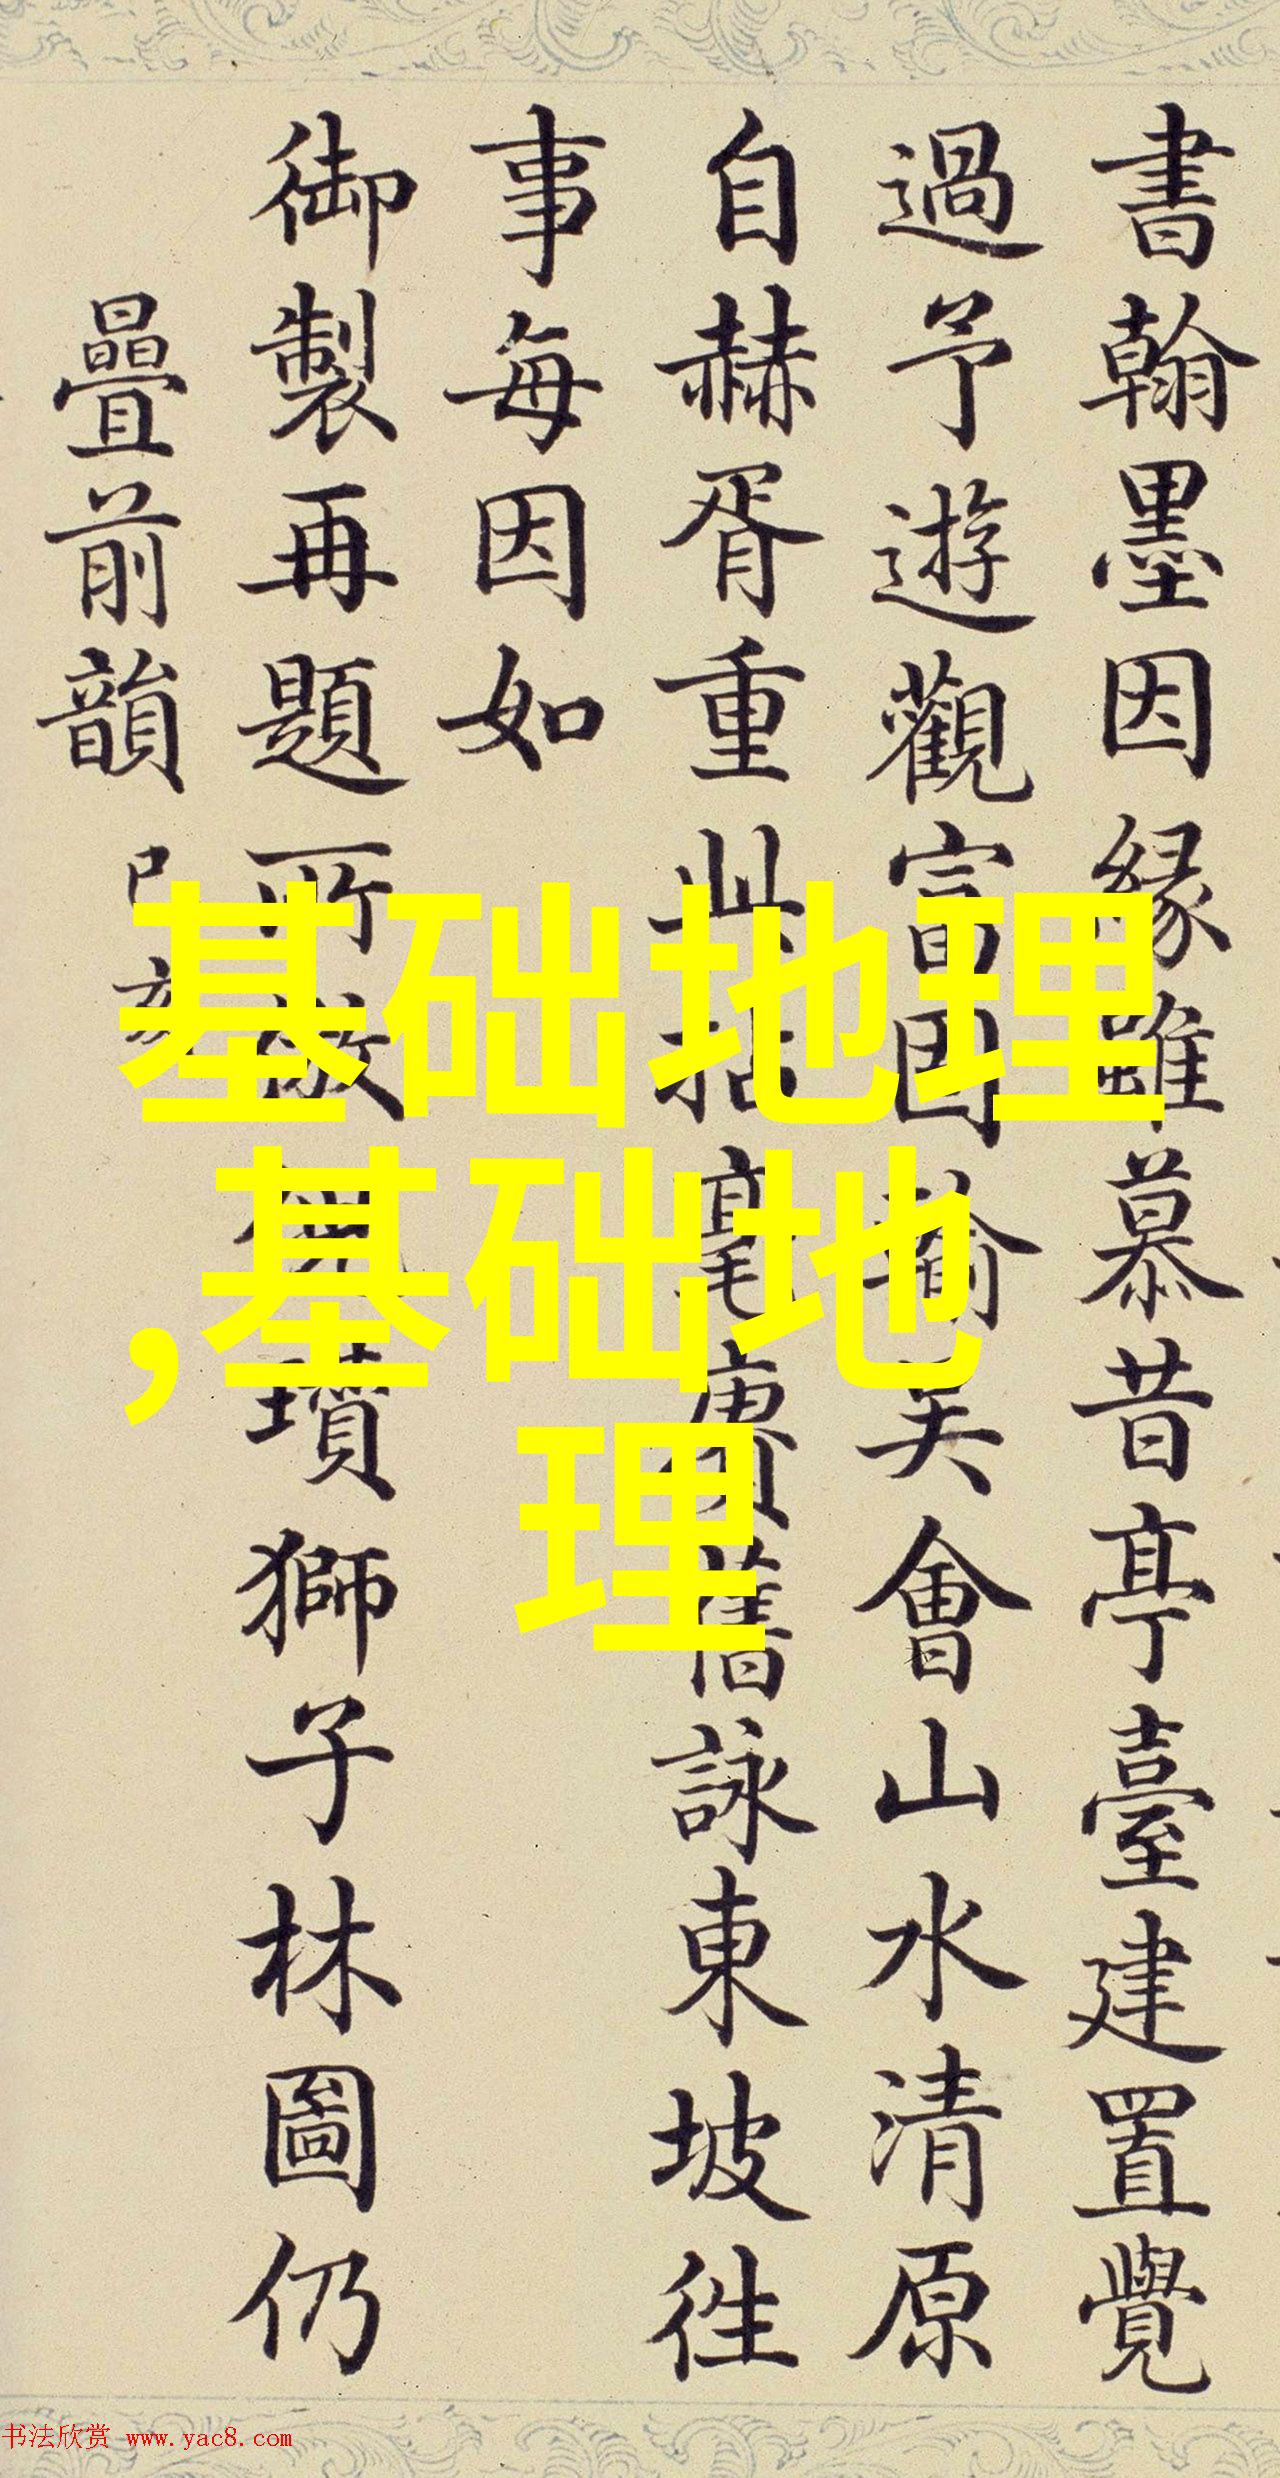 書翰墨因緣雖慕昔亭臺建置覺
過予遊觀富因喻矣會山水清原
自赫胥重耄賡舊詠東坡徃
事每因如
御製再題所倣倪瓚獅子林圖仍
疊前韻 己亥
基础地理
,基础地
理
书法欣赏 www.yac8.com